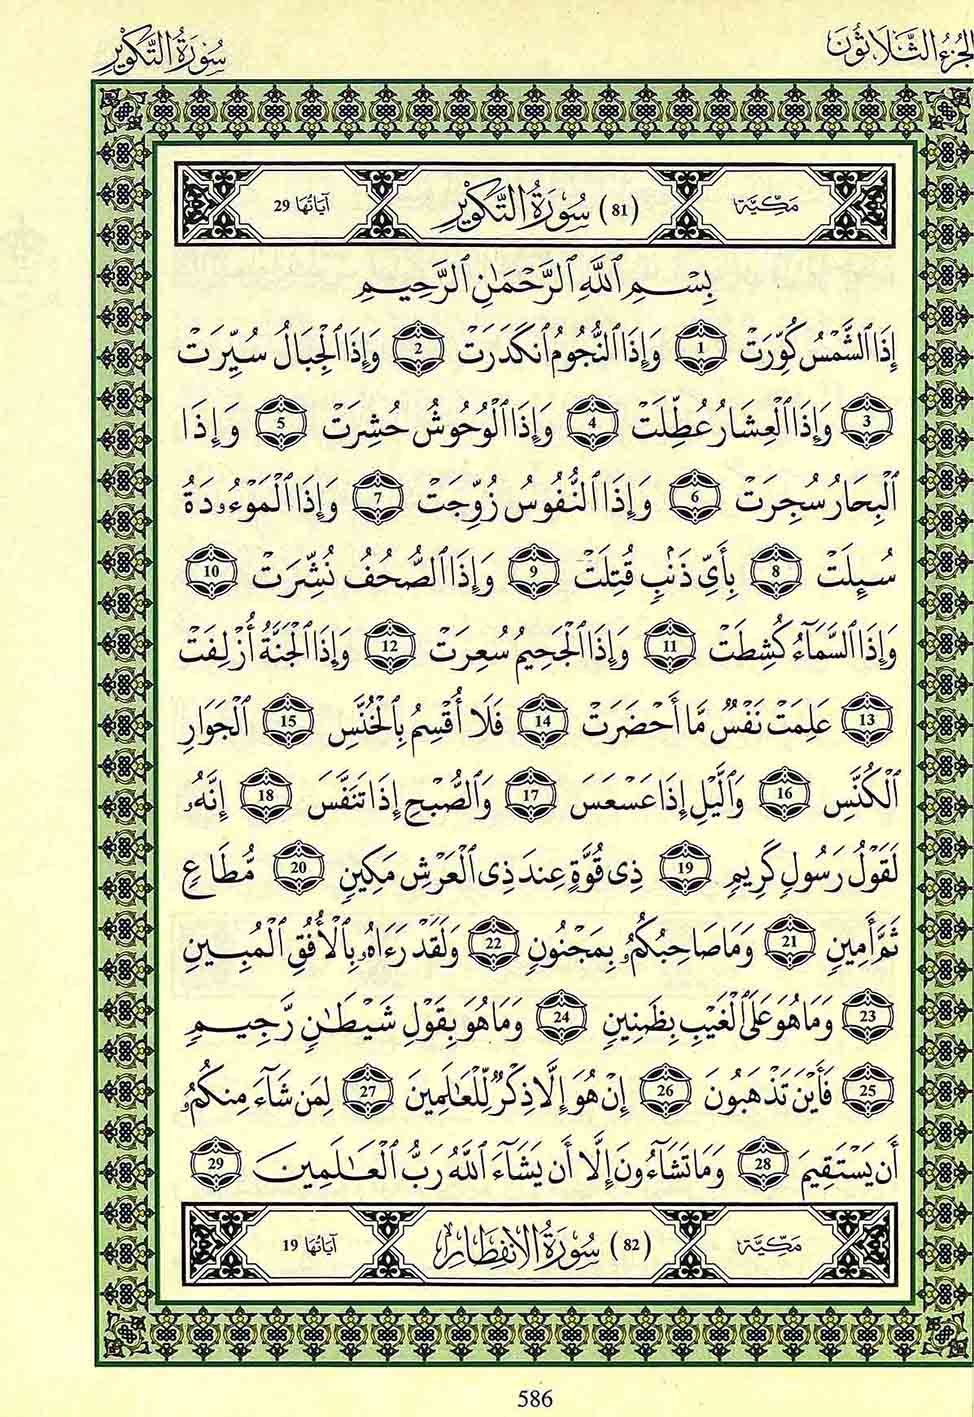 الجزء الثلاثون
سورة التكوير
مكية (81) سُورَةُ التَّكْوِيرِ آيَاتُهَا 29
بِسْمِ ٱللَّهِ ٱلرَّحْمَٰنِ ٱلرَّحِيمِ
إِذَا ٱلشَّمْسُ كُوِّرَتْ 1 وَإِذَا ٱلنُّجُومُ ٱنكَدَرَتْ 2 وَإِذَا ٱلْجِبَالُ سُيِّرَتْ
3 وَإِذَا ٱلْعِشَارُ عُطِّلَتْ 4 وَإِذَا ٱلْوُحُوشُ حُشِرَتْ 5 وَإِذَا
ٱلْبِحَارُ سُجِرَتْ 6 وَإِذَا ٱلنُّفُوسُ زُوِّجَتْ 7 وَإِذَا ٱلْمَوْءُۥدَةُ
سُئِلَتْ 8 بِأَيِّ ذَنۢبٍ قُتِلَتْ 9 وَإِذَا ٱلصُّحُفُ نُشِّرَتْ 10
وَإِذَا ٱلسَّمَآءُ كُشِطَتْ 11 وَإِذَا ٱلْجَحِيمُ سُعِرَتْ 12 وَإِذَا ٱلْجَنَّةُ أُزْلِفَتْ
13 عَلِمَتْ نَفْسٌ مَّا أَحْضَرَتْ 14 فَلَا أُقْسِمُ بِٱلْخُنَّسِ 15 ٱلْجَوَارِ
ٱلْكُنَّسِ 16 وَٱلَّيْلِ إِذَا عَسْعَسَ 17 وَٱلصُّبْحِ إِذَا تَنَفَّسَ 18 إِنَّهُۥ
لَقَوْلُ رَسُولٍ كَرِيمٍ 19 ذِى قُوَّةٍ عِندَ ذِى ٱلْعَرْشِ مَكِينٍ 20 مُّطَاعٍ
ثَمَّ أَمِينٍ 21 وَمَا صَاحِبُكُمُۥ بِمَجْنُونٍ 22 وَلَقَدْ رَءَاهُۥ بِٱلْأُفُقِ ٱلْمُبِينِ
23 وَمَا هُوَ عَلَى ٱلْغَيْبِ بِظَنِينٍ 24 وَمَا هُوَ بِقَوْلِ شَيْطَٰنٍ رَّجِيمٍ
25 فَأَيْنَ تَذْهَبُونَ 26 إِنْ هُوَ إِلَّا ذِكْرٌ لِّلْعَٰلَمِينَ 27 لِمَن شَآءَ مِنكُمُۥ
أَن يَسْتَقِيمَ 28 وَمَا تَشَآءُونَ إِلَّا أَن يَشَآءَ ٱللَّهُ رَبُّ ٱلْعَٰلَمِينَ 29
مكية (82) سُورَةُ الِانفِطَارِ آيَاتُهَا 19
586